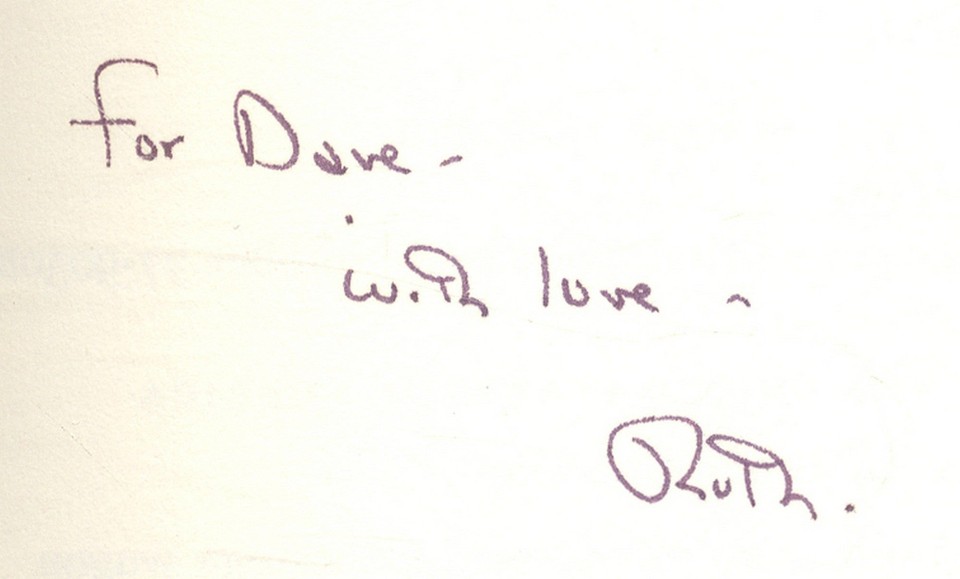 For Dave -
with love -
Ruth.